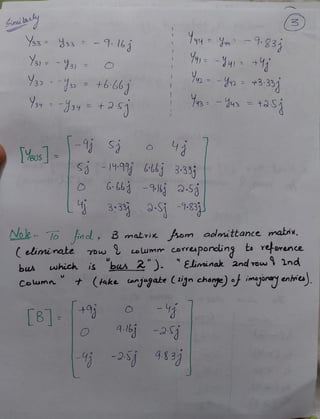 Similarly
3
Y33 = y33 = - 9.16j
Y31 = - y31 = 0
Y32 = - y32 = +6.66j
Y34 = - y34 = +2.5j
Y44 = y44 = - 9.83j
Y41 = - y41 = +4j
Y42 = - y42 = +3.33j
Y43 = - y43 = +2.5j
[YBUS] =
-9j 5j 0 4j
5j -14.99j 6.66j 3.33j
0 6.66j -9.16j 2.5j
4j 3.33j 2.5j -9.83j
Note - To find, B matrix from admittance matrix,
(eliminate row & column corresponding to reference
bus which is "bus 2"). "Eliminate 2nd row & 2nd
column" + (take conjugate (sign change) of imaginary entries).
[B] =
+9j 0 -4j
0 9.16j -2.5j
-4j -2.5j 9.83j